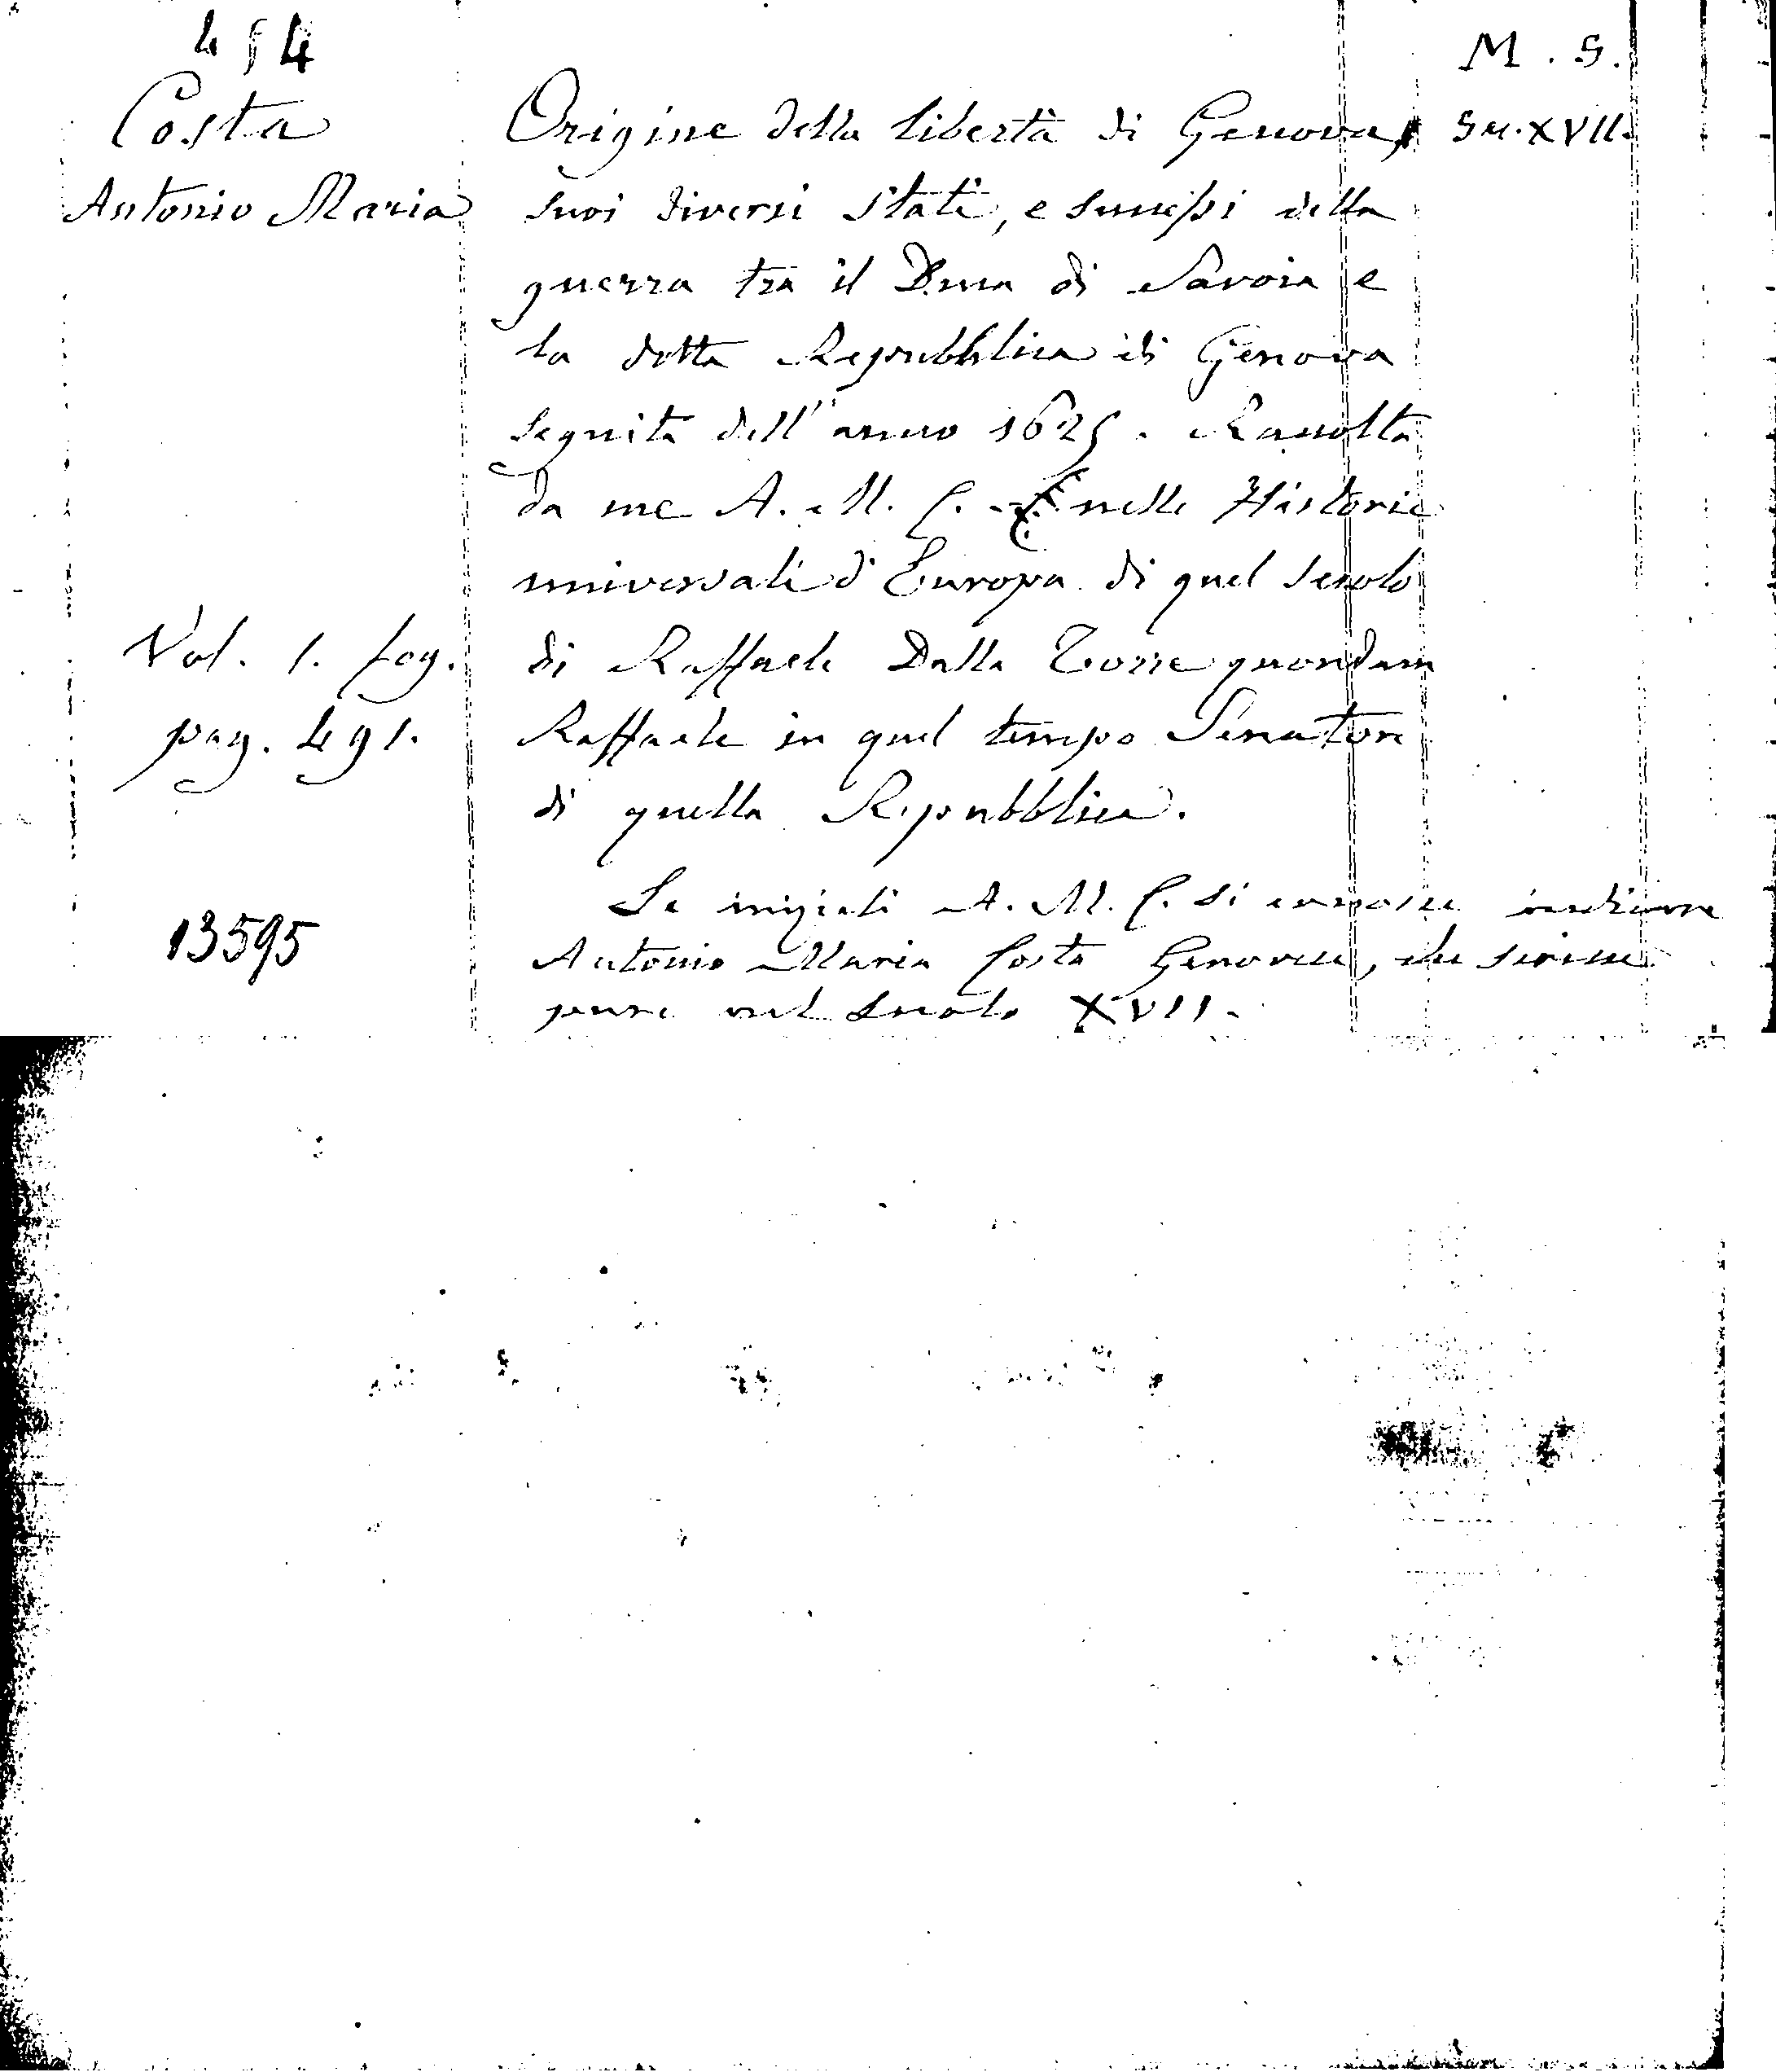 454
M. S.
Costa
Antonio Maria
Sec. XVII.
Origine della libertà di Genova,
suoi diversi stati, e successi della
guerra tra il Duca di Savoia e
la detta Repubblica di Genova
seguita dell'anno 1625. Raccolta
da me A. M. C. nelle Historie
universali d'Europa di quel secolo
di Raffaele Dalla Torre quondam
Raffaele in quel tempo Senatore
di quella Repubblica.
Vol. 1. fog.
pag. 491.
Le iniziali A. M. C. si conosce indicare
Antonio Maria Costa Genovese, che scrisse
pure nel secolo XVII.
13595